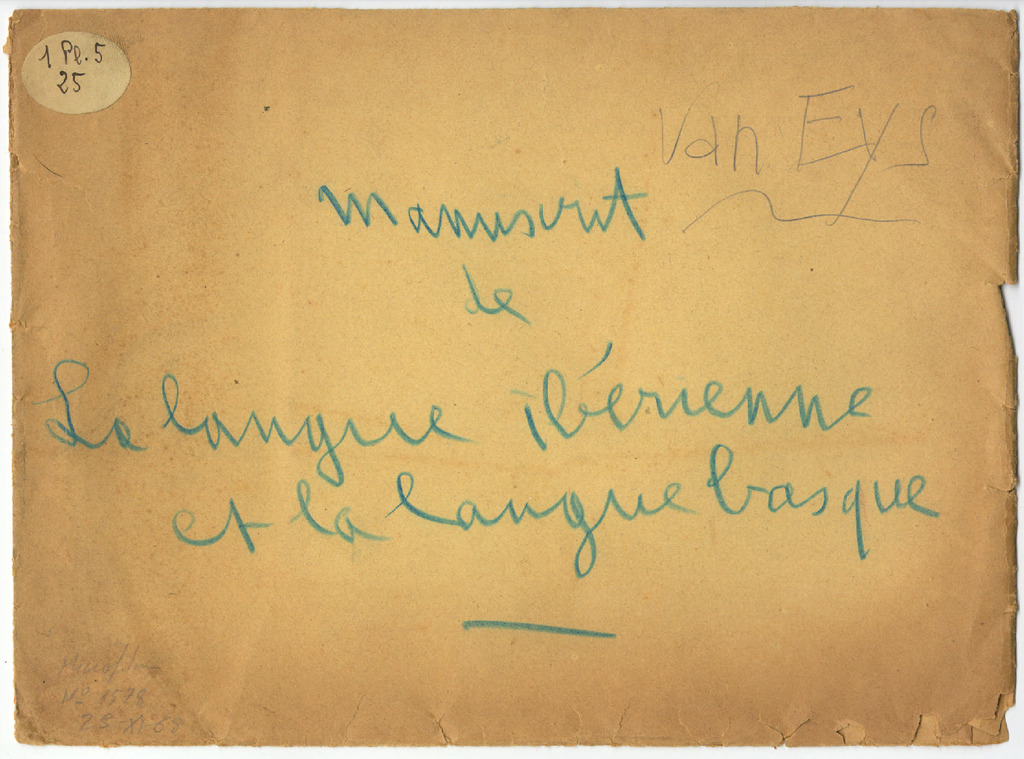 1 Pl. 5
25
Van Eys
manuscrit
de
La langue ibérienne
et la langue basque
Microfilm
Nº 1578